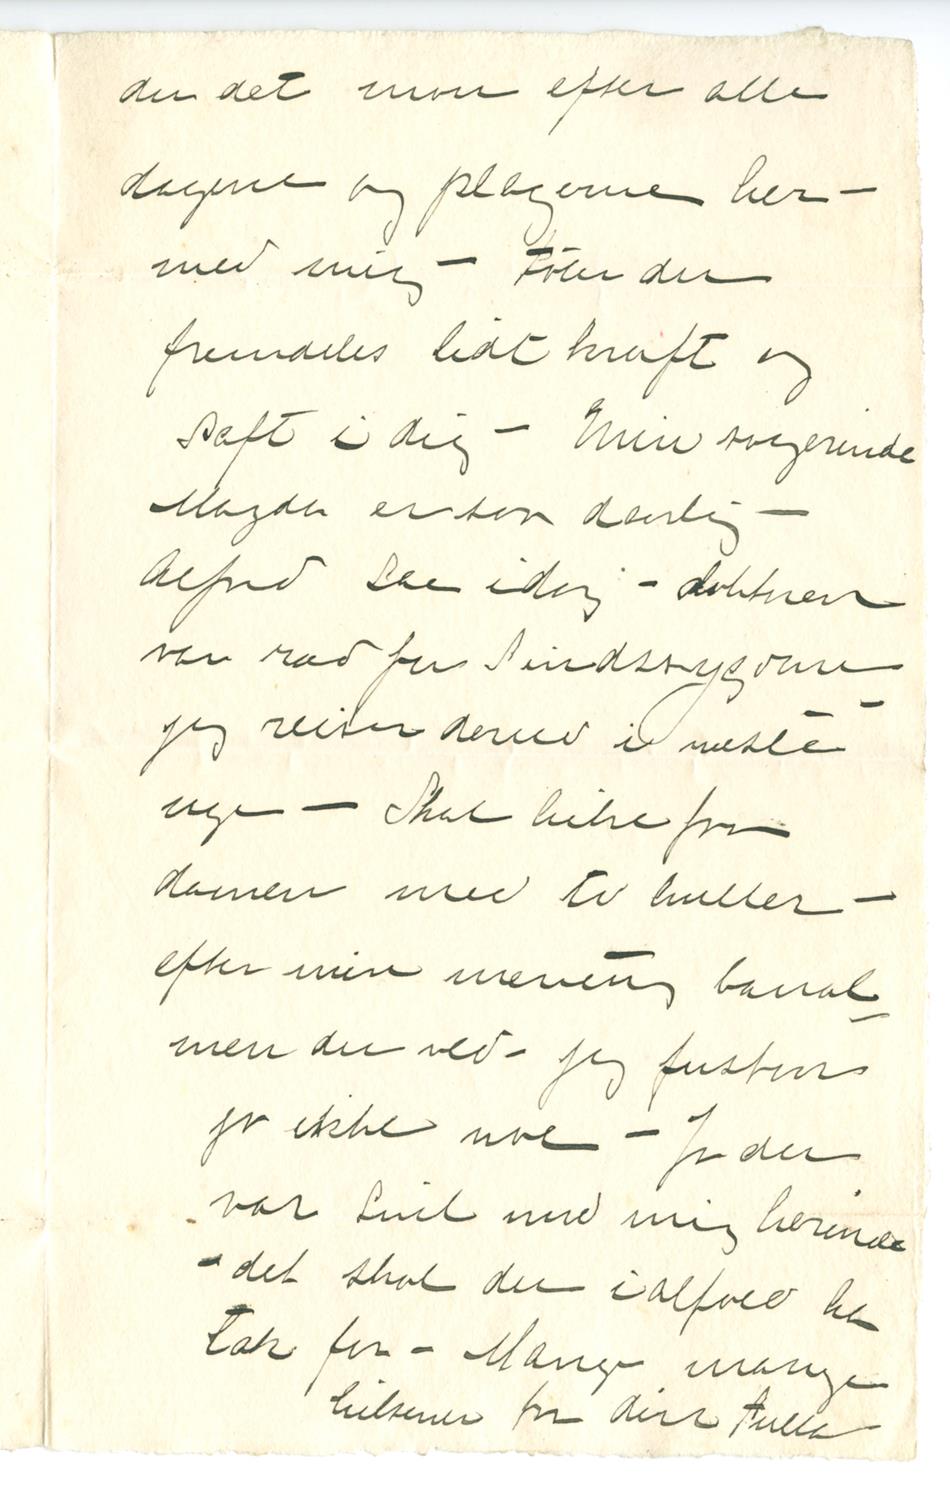 du det mon efter alle
dagene og plagerne her –
med mig – Føler du
fremdeles lidt kraft og
saft i dig – Min svigerinde
Magda er saa daarlig –
Alfred sae idag – doktoren
var ræd for Sindssygdom –
jeg reiser derned i næste
uge – Skal hilse fra
damen med to huller –
efter min mening banal –
men du ved – jeg
ja ikke noe – Ja du
var snil med mig herinde
– det skal du ialfald ha
tak for – Mange mange
hilsener fra din Tulla